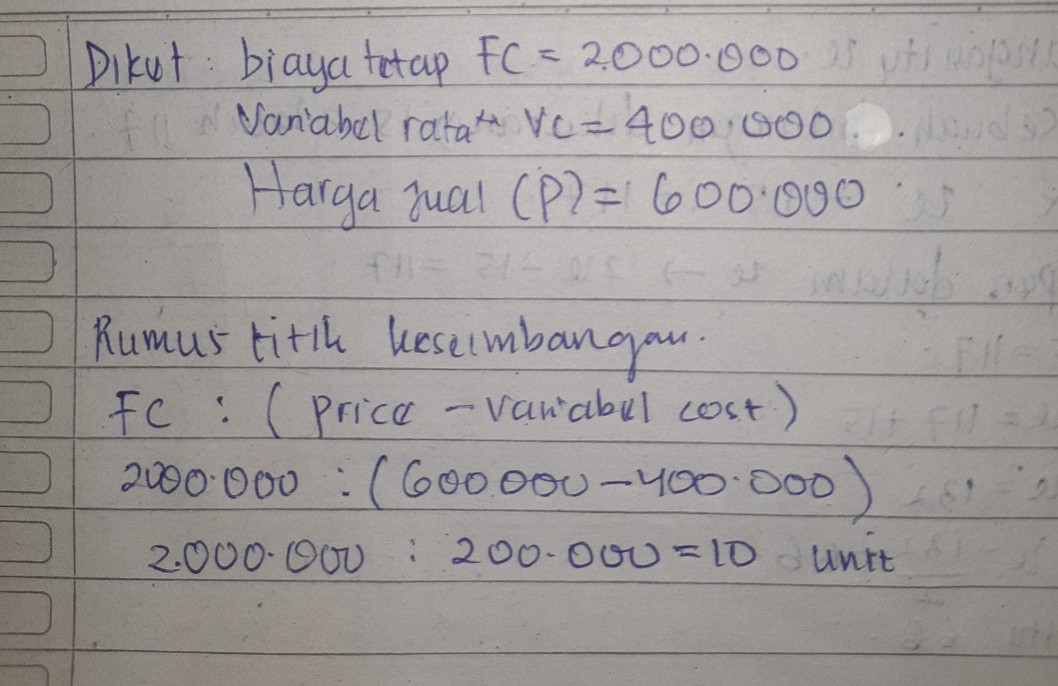 Dikut : biaya tetap FC = 2.000.000
Variabel rata" VC = 400.000.
Harga jual (P) = 600.000
Rumus titik keseimbangan.
FC : (price - variabel cost)
2000.000 : (600.000 - 400.000)
2.000.000 : 200.000 = 10 unit